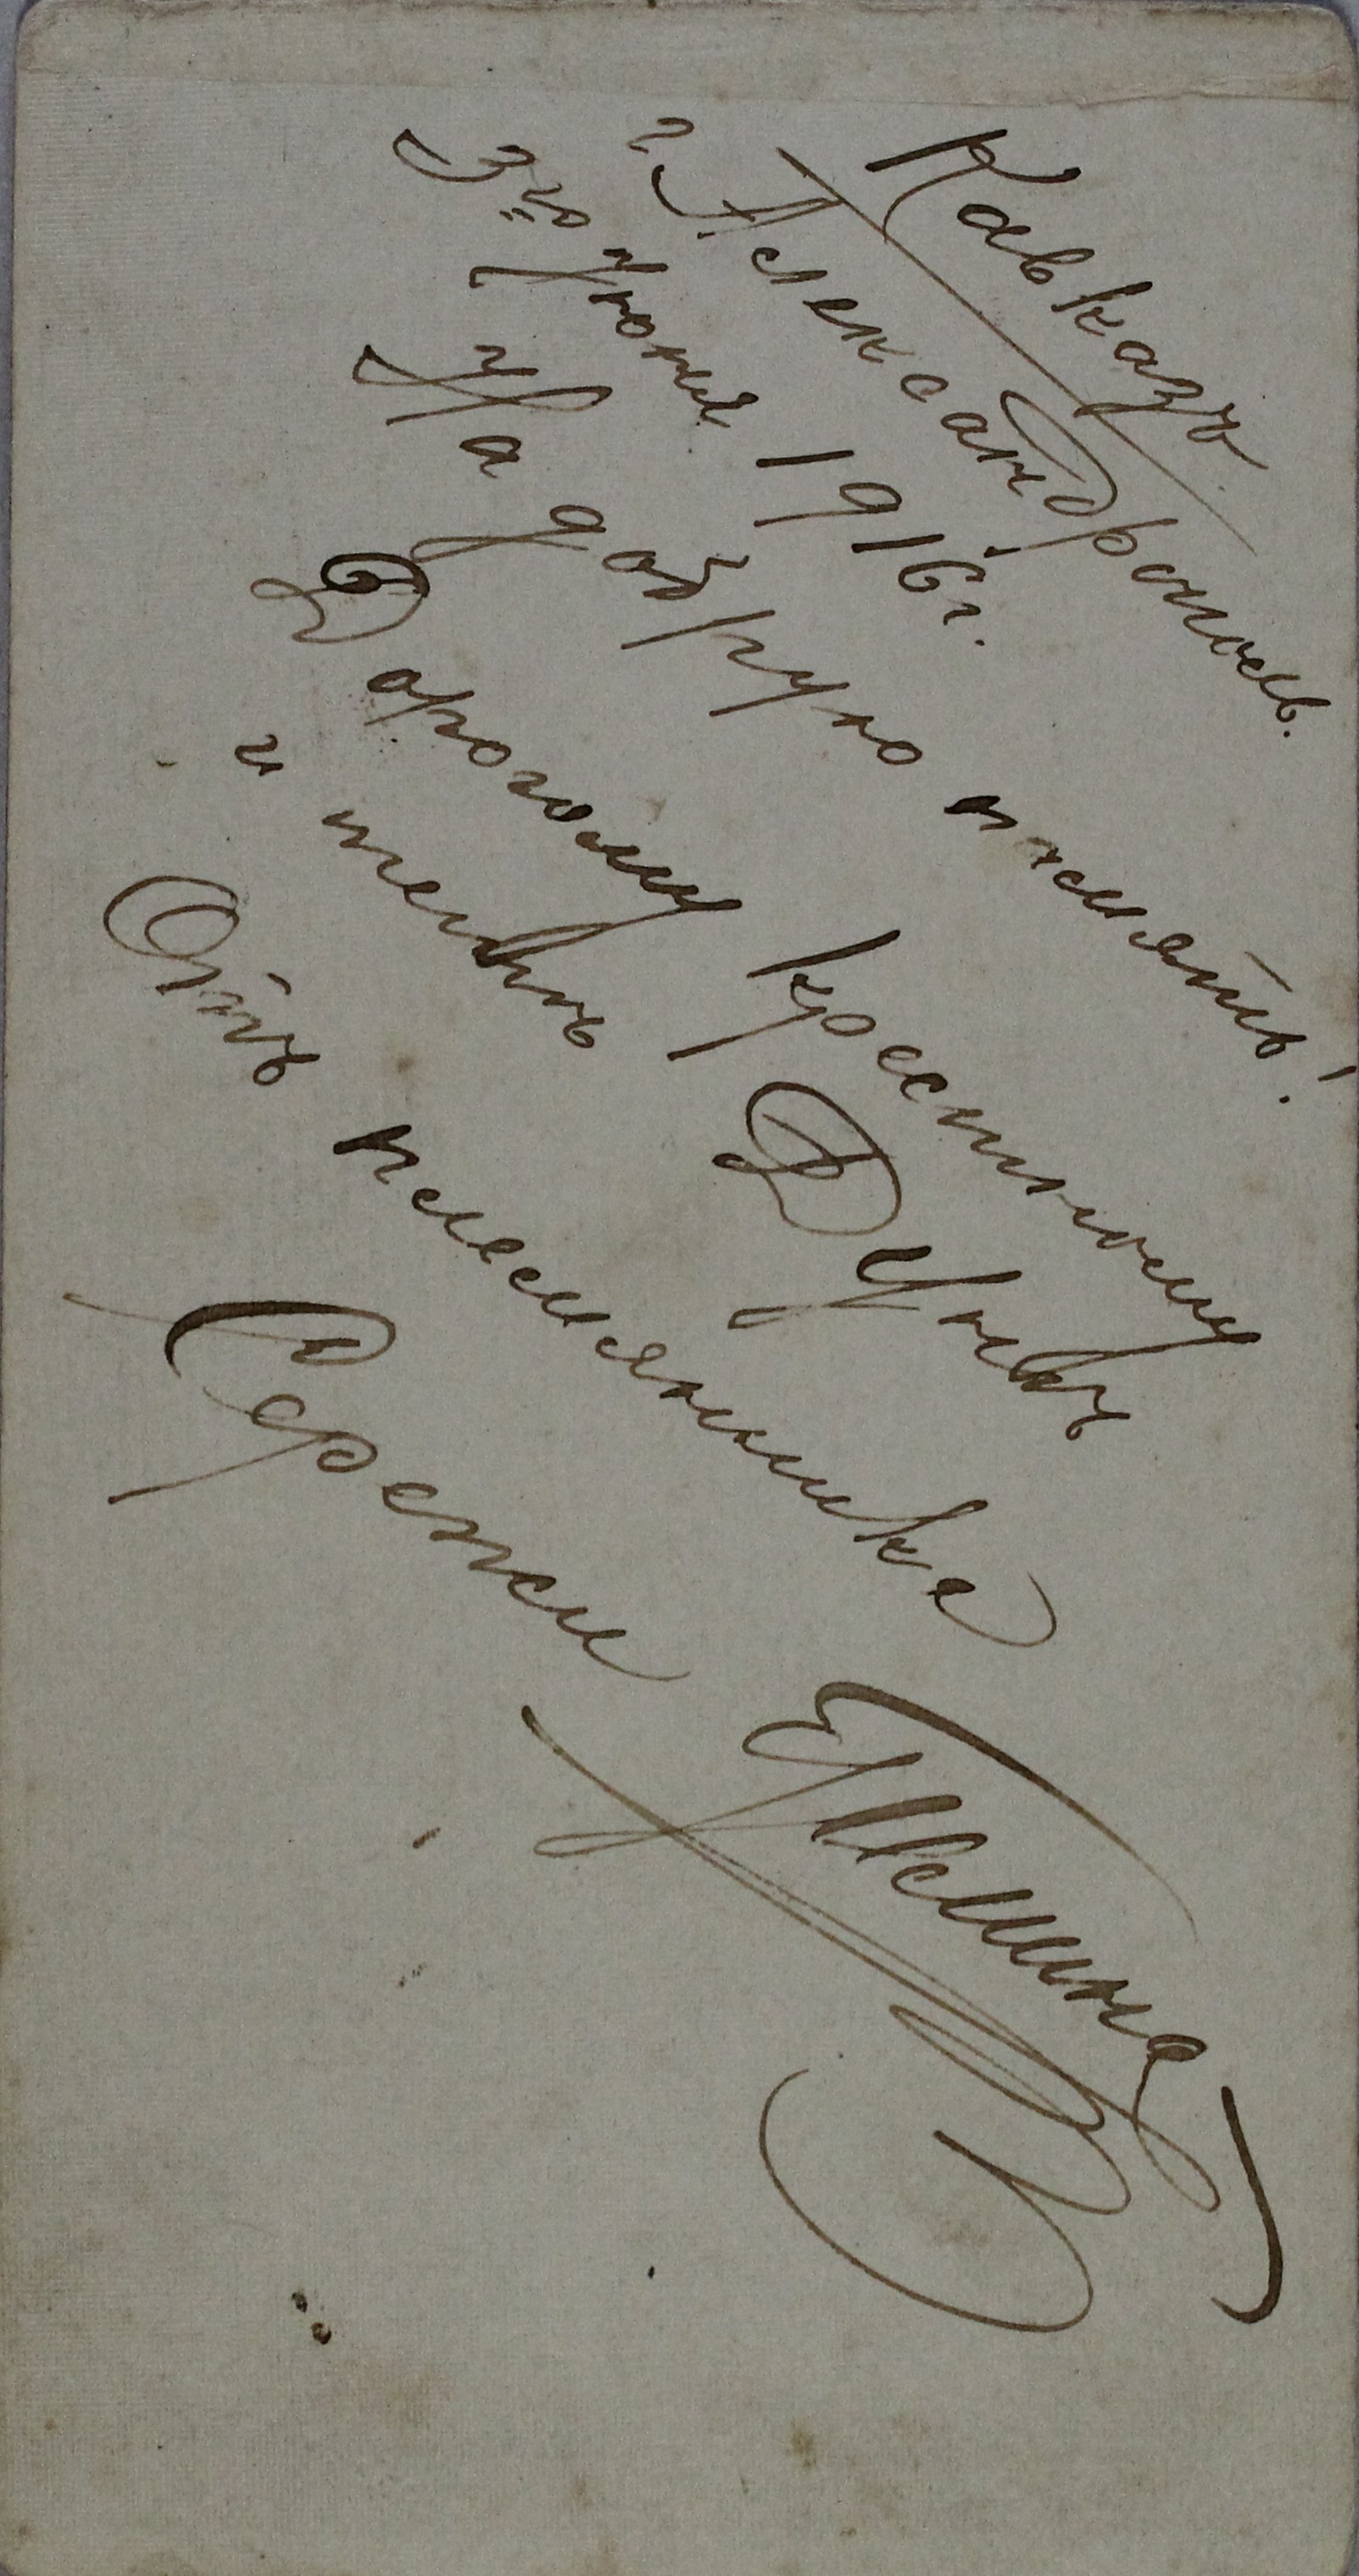 Кавказъ.
г. Александрополь.
3го Июня 1916 г.
На добрую память!
Дорогому крестному
и тетѣ Дунѣ
Отъ племянника
Сережи